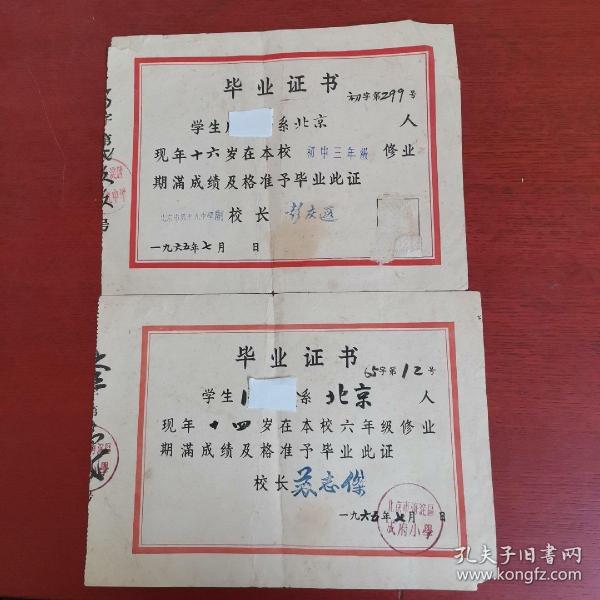 毕业证书
初字第299号
学生 系北京 人
现年十六岁在本校 初中三年级 修业
期滿成绩及格准予毕业此证
校长
一九六五年七月 日
毕业证书
65字第12号
学生 系北京 人
现年十四岁在本校六年级修业
期滿成绩及格准予毕业此证
校长 苏志傑
一九六五年七月 日
北京市海淀區
成府小學
孔夫子旧书网
www.kongfz.com